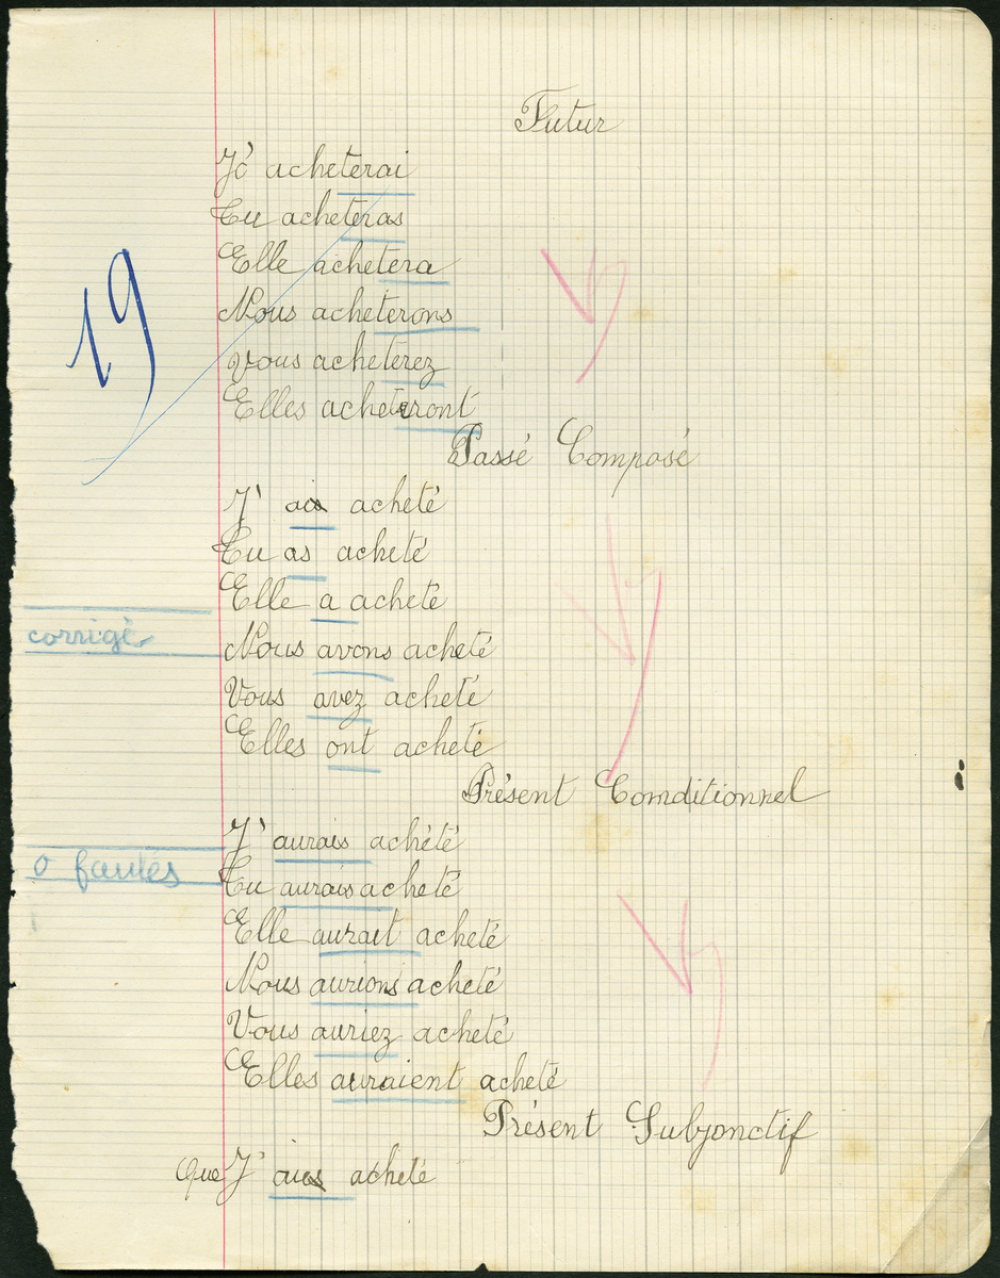 Futur
J' acheterai
Tu acheteras
Elle achetera
Nous acheterons
Vous acheterez
Elles acheteront
19
Passé Composé
J' ai acheté
Tu as acheté
Elle a acheté
corrigé
Nous avons acheté
Vous avez acheté
Elles ont acheté
Présent Comditionnel
J' aurais acheté
0 fautes
Tu aurais acheté
Elle aurait acheté
Nous aurions acheté
Vous auriez acheté
Elles auraient acheté
Présent Subjonctif
Que J' acheté